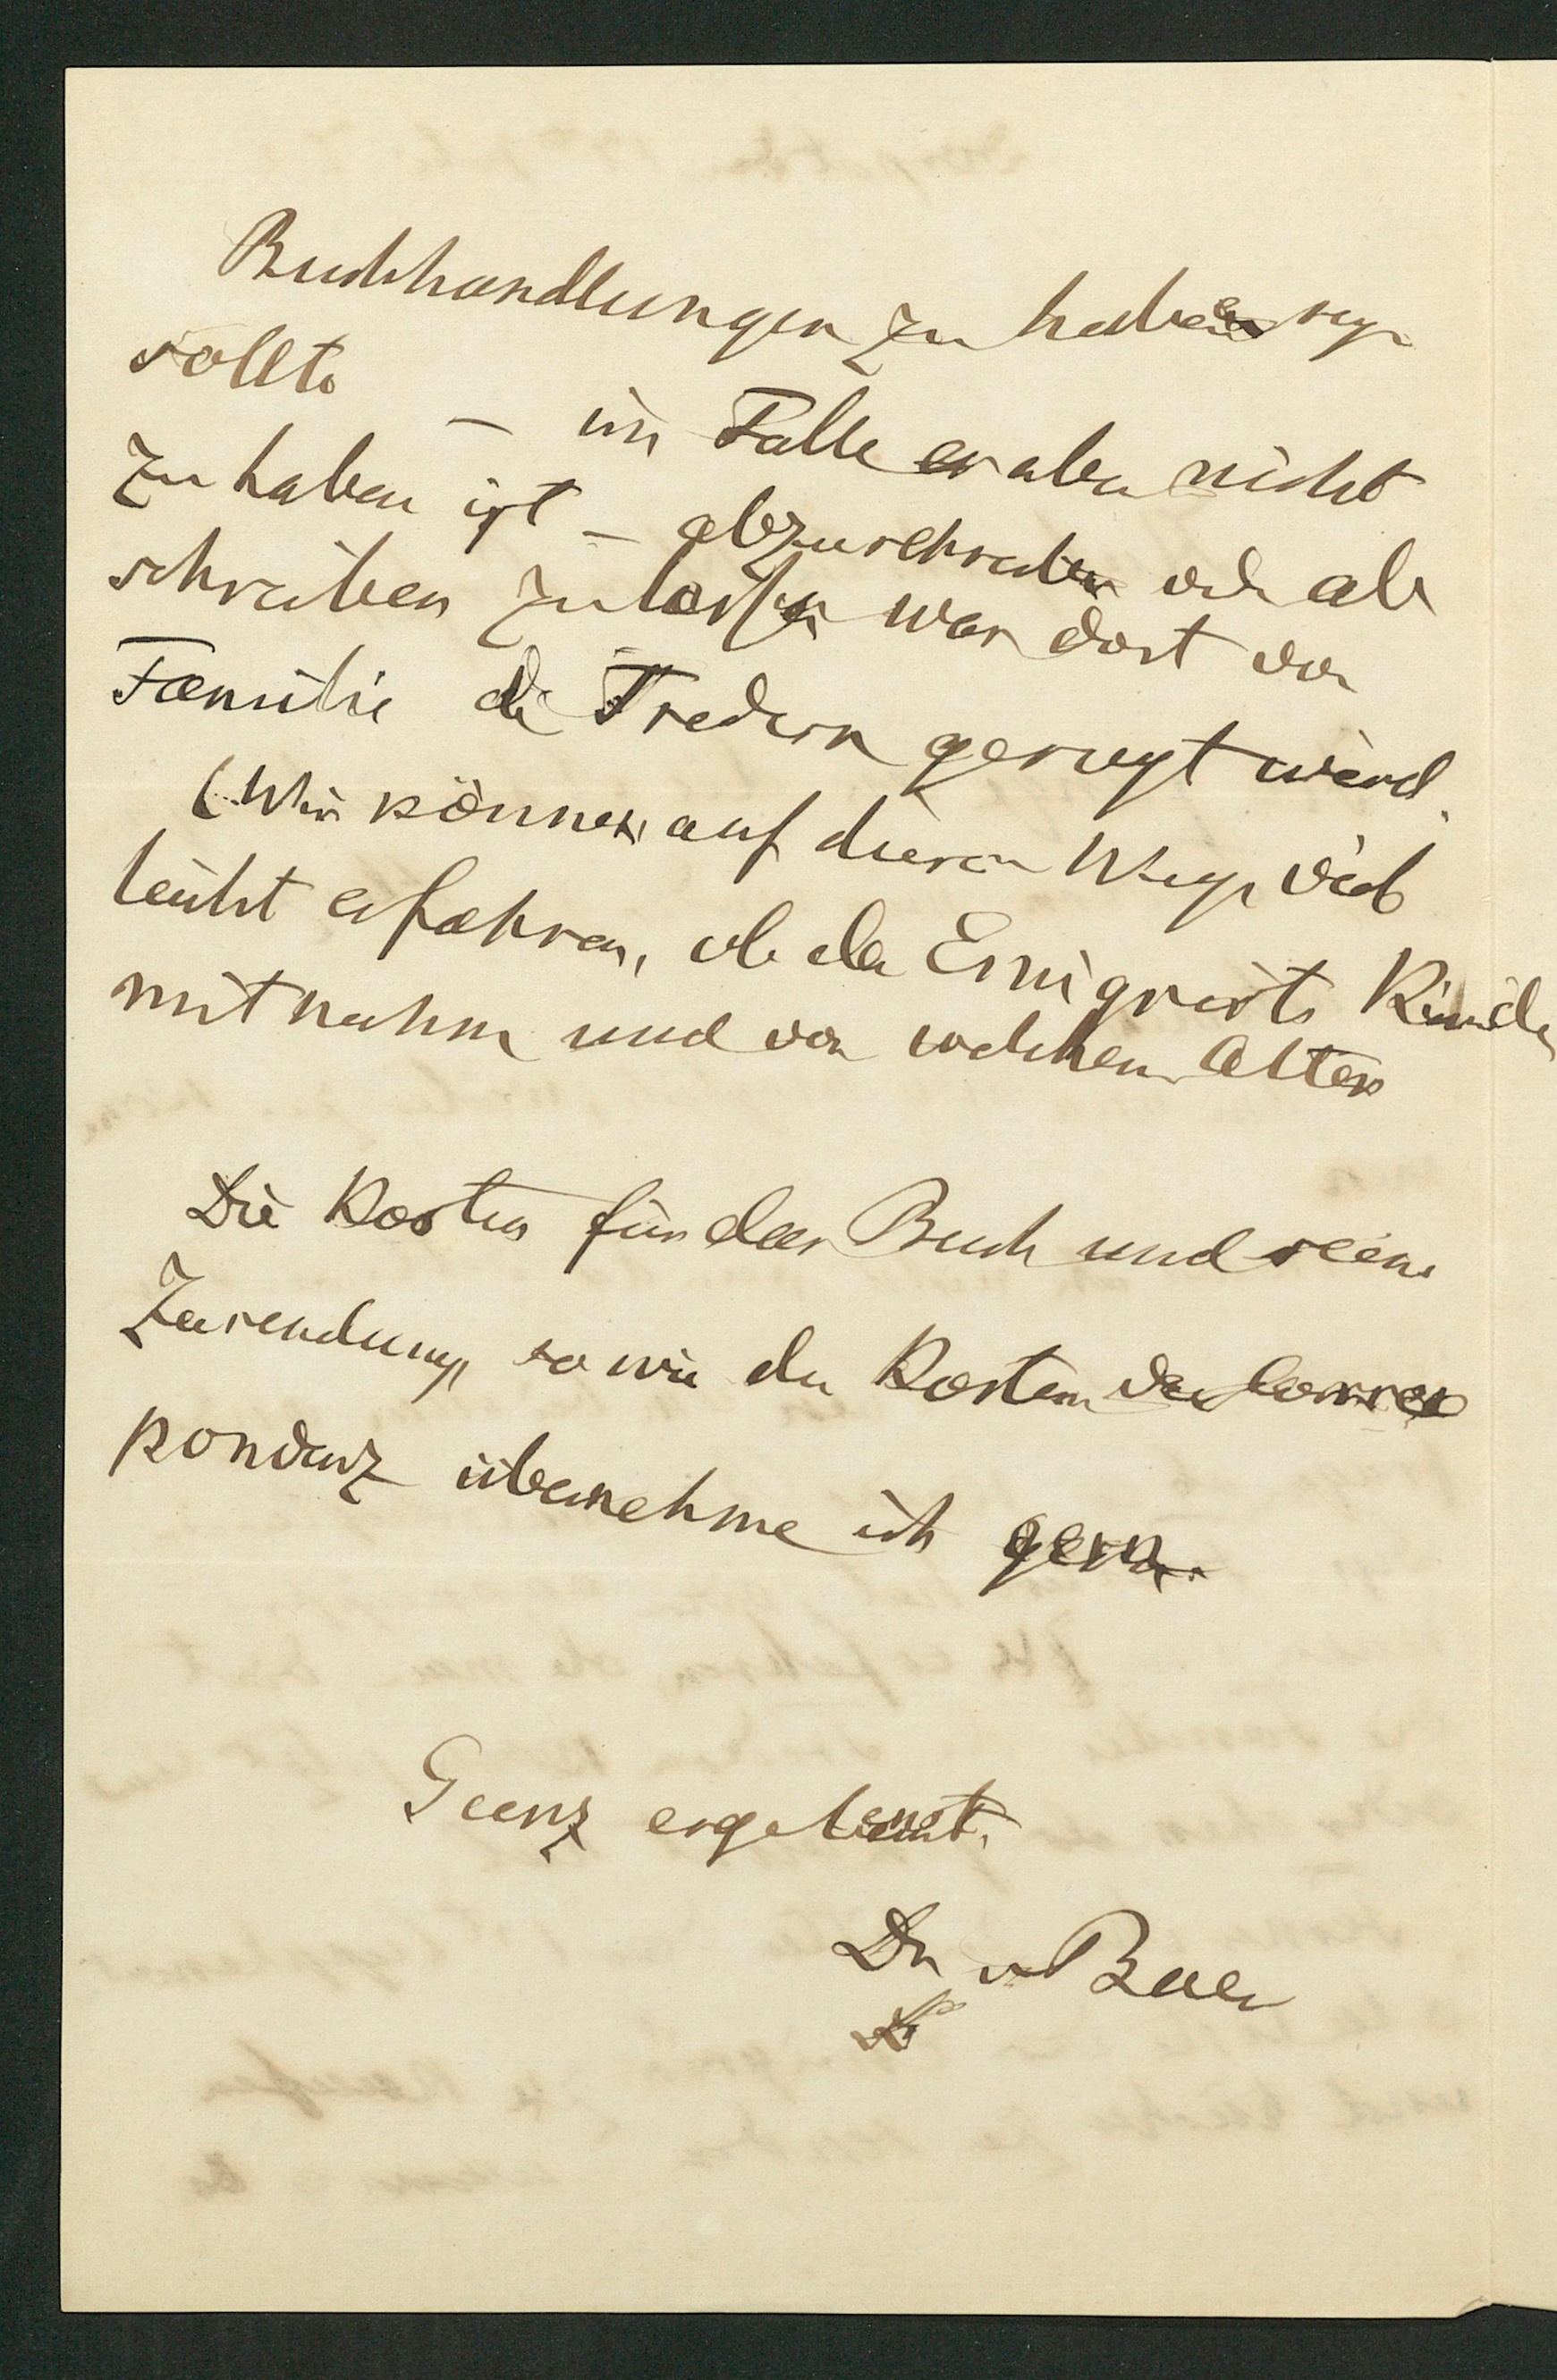 Buchhandlungen zu haben seyn
sollte
– im Falle es aber nicht
zu haben ist – abzuschreiben oder ab
schreiben zu lassen was dort von
Familie de Tredern gesagt wird.
(Wir können auf diesem Wege viel
leicht erfahren, ob der Emigrirte Kinder
mitnahm und von welchem Alter
Die Kosten für das Buch und seine
Zusendung so wie die Kosten der Corres
pondenz übernehme ich gern.
Ganz ergebenst.
Dr v Baer